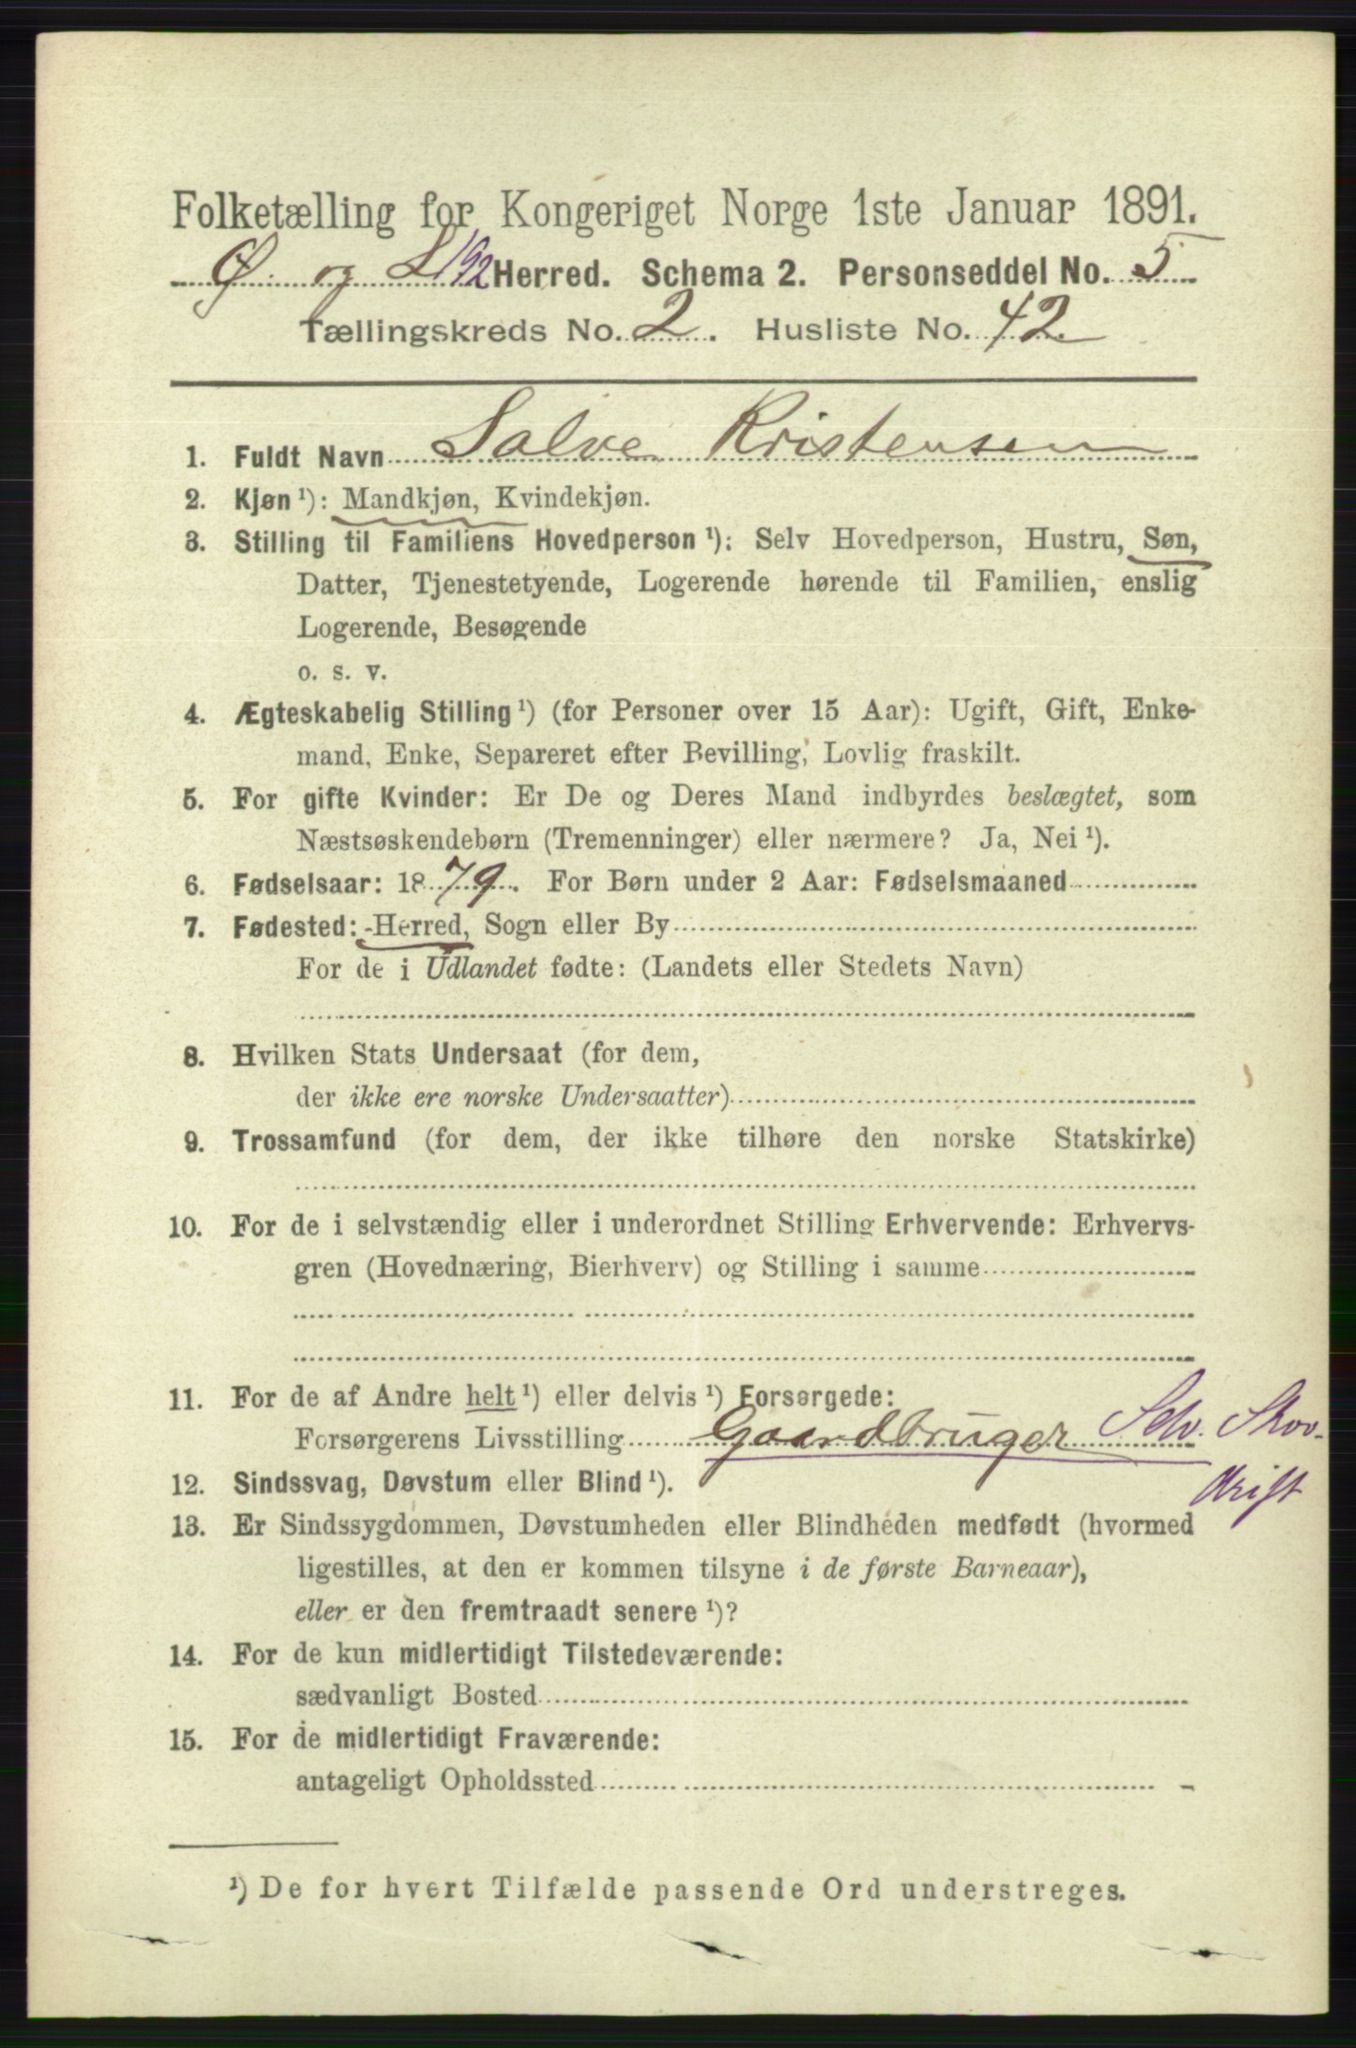 Folketælling for Kongeriget Norge 1ste Januar 1891.
Ø. og L 192 Herred. Schema 2. Personseddel No. 5
Tællingskreds No. 2. Husliste No. 42.
1. Fuldt Navn Salve Kristensen
2. Kjøn ¹): Mandkjøn, Kvindekjøn.
3. Stilling til Familiens Hovedperson ¹): Selv Hovedperson, Hustru, Søn,
Datter, Tjenestetyende, Logerende hørende til Familien, enslig
Logerende, Besøgende
o. s. v.
4. Ægteskabelig Stilling ¹) (for Personer over 15 Aar): Ugift, Gift, Enke-
mand, Enke, Separeret efter Bevilling, Lovlig fraskilt.
5. For gifte Kvinder: Er De og Deres Mand indbyrdes beslægtet, som
Næstsøskendebørn (Tremenninger) eller nærmere? Ja, Nei ¹).
6. Fødselsaar: 1879. For Børn under 2 Aar: Fødselsmaaned
7. Fødested: Herred, Sogn eller By
For de i Udlandet fødte: (Landets eller Stedets Navn)
8. Hvilken Stats Undersaat (for dem,
der ikke ere norske Undersaatter)
9. Trossamfund (for dem, der ikke tilhøre den norske Statskirke)
10. For de i selvstændig eller i underordnet Stilling Erhvervende: Erhvervs-
gren (Hovednæring, Bierhverv) og Stilling i samme
11. For de af Andre helt ¹) eller delvis ¹) Forsørgede:
Forsørgerens Livsstilling Gaardbruger Selv. Skov-
drift
12. Sindssvag, Døvstum eller Blind ¹).
13. Er Sindssygdommen, Døvstumheden eller Blindheden medfødt (hvormed
ligestilles, at den er kommen tilsyne i de første Barneaar),
eller er den fremtraadt senere ¹)?
14. For de kun midlertidigt Tilstedeværende:
sædvanligt Bosted
15. For de midlertidigt Fraværende:
antageligt Opholdssted
¹) De for hvert Tilfælde passende Ord understreges.